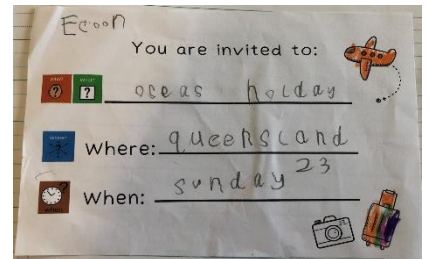 Ecoon
You are invited to:
oseas holday
Where: queensland
23
When: sunday